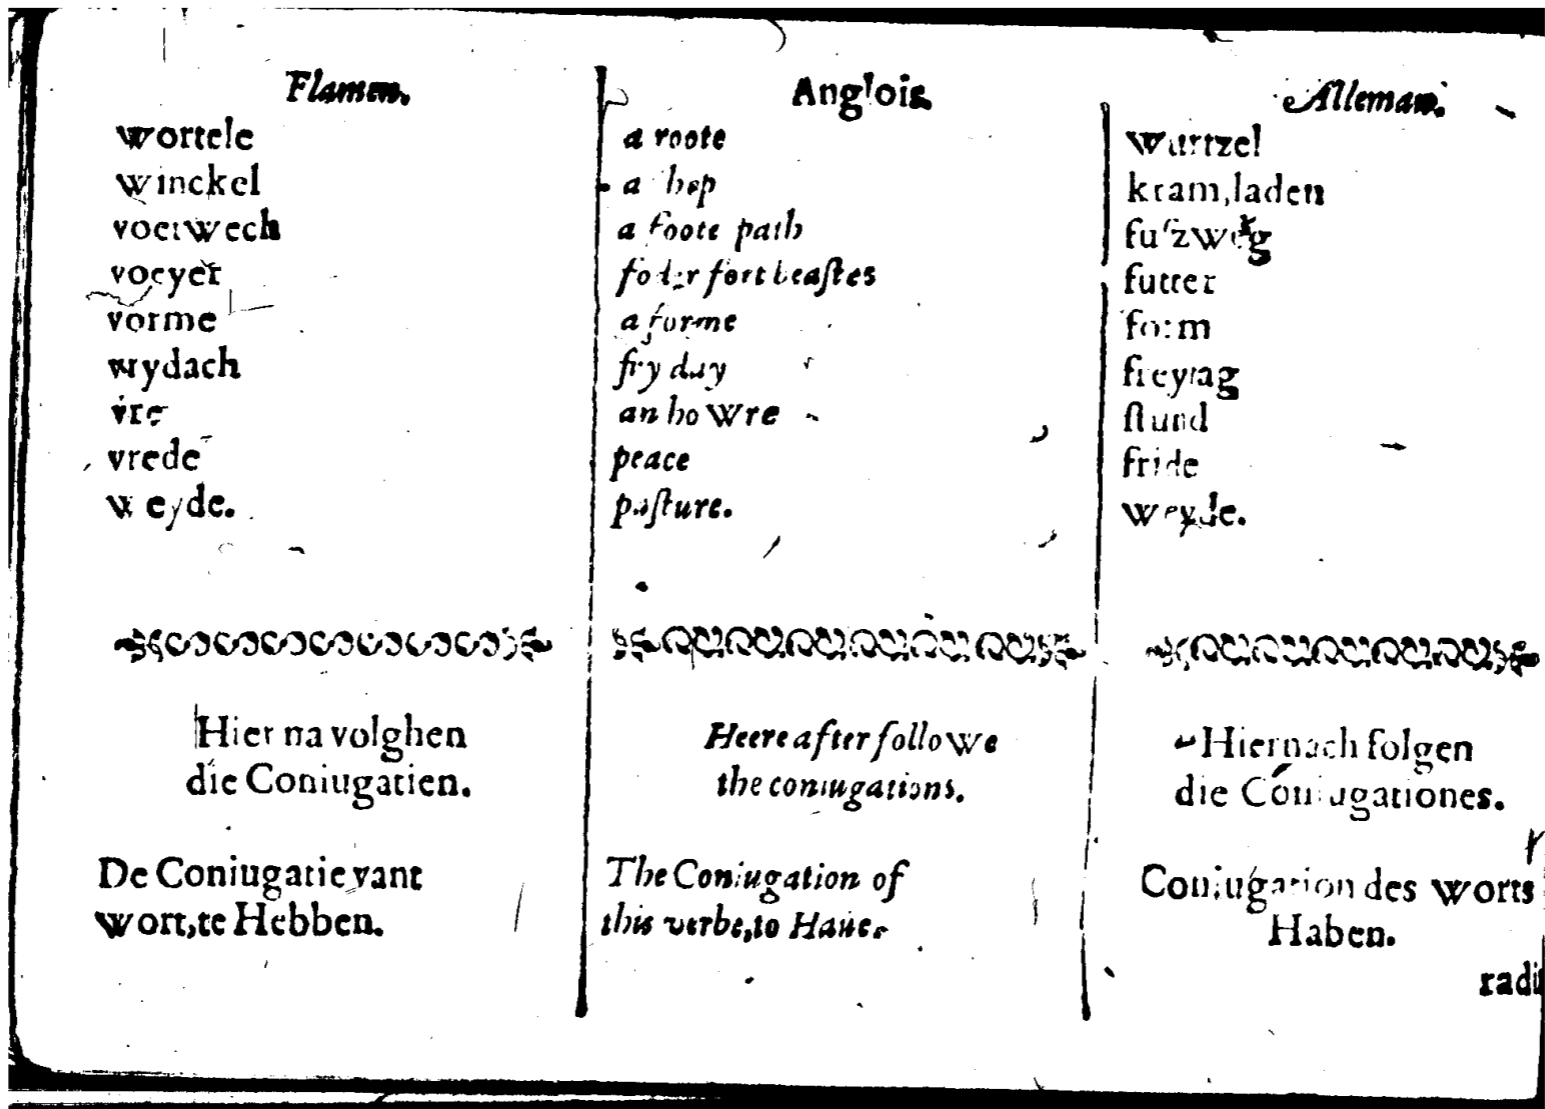 Flamen.
wortele
winckel
voetwech
voeyer
vorme
wrydach
vre
vrede
weyde.
Hier na volghen
die Coniugatien.
De Coniugatie vant
wort, te Hebben.
Anglois
a roote
a
a foote path
foder fort beaſtes
a forme
fry day
an howre
peace
paſture.
Heere after followe
the coniugations.
The Coniugation of
this verbe, to Haue.
Alleman.
wurtzel
kram, laden
fuſzweg
futter
form
freytag
ſtund
fride
weyde.
Hiernach folgen
die Coniugationes.
Coniugation des worts
Haben.